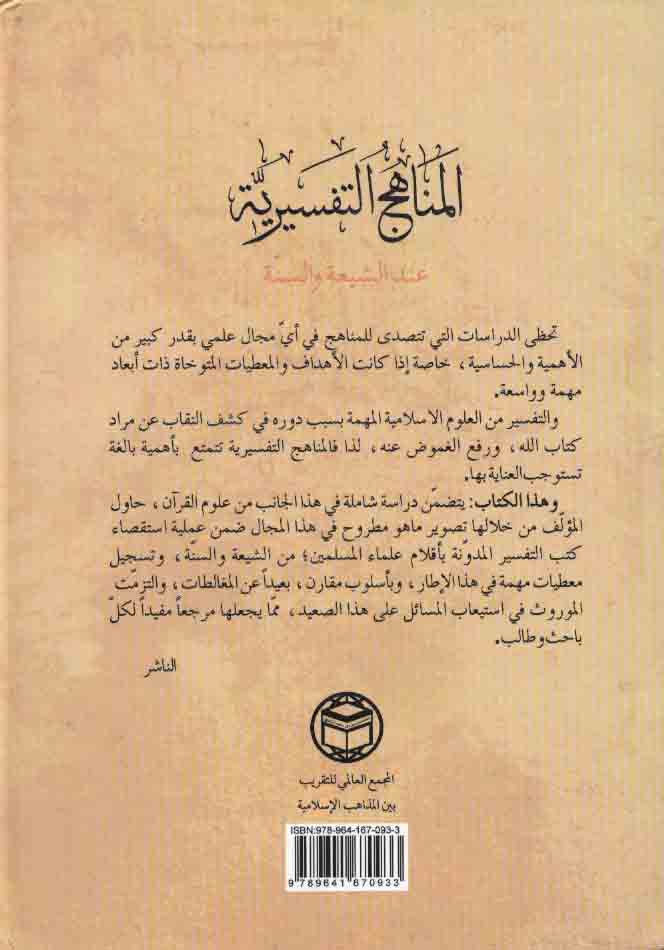 المَنَاهِجُ التَفسيريَّة
عند الشيعة والسنّة
تحظى الدراسات التي تتصدى للمناهج في أيّ مجال علمي بقدر كبير من
الأهمية والحساسية، خاصة إذا كانت الأهداف والمعطيات المتوخاة ذات أبعاد
مهمة وواسعة.
والتفسير من العلوم الاسلامية المهمة بسبب دوره في كشف النقاب عن مراد
كتاب الله، ورفع الغموض عنه، لذا فالمناهج التفسيرية تتمتع بأهمية بالغة
تستوجب العناية بها.
وهذا الكتاب: يتضمّن دراسة شاملة في هذا الجانب من علوم القرآن، حاول
المؤلّف من خلالها تصوير ماهو مطروح في هذا المجال ضمن عملية استقصاء
كتب التفسير المدوّنة بأقلام علماء المسلمين؛ من الشيعة والسنّة، وتسجيل
معطيات مهمة في هذا الإطار، وبأسلوب مقارن، بعيداً عن المغالطات، والتزمّت
الموروث في استيعاب المسائل على هذا الصعيد، ممّا يجعلها مرجعاً مفيداً لكلّ
باحث وطالب.
الناشر
المجمع العالمي للتقريب
بين المذاهب الإسلامية
ISBN:978-964-167-093-3
9 789641 670933